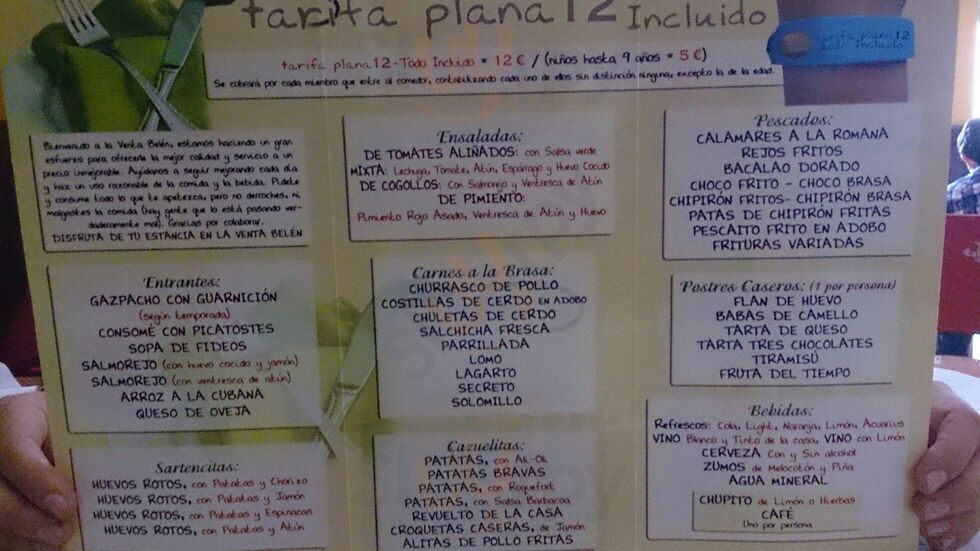 tarifa plana 12 Incluido
tarifa plana 12
todo incluido
tarifa plana 12 - Todo Incluido = 12 € / (niños hasta 9 años = 5 €)
Se cobrará por cada miembro que entre al comedor, contabilizando cada uno de ellos sin distinción ninguna, excepto la de la edad.
Bienvenido a la Venta Belén, estamos haciendo un gran
esfuerzo para ofrecerle la mejor calidad y servicio a un
precio inmejorable. Ayúdanos a seguir mejorando cada día
y haz un uso razonable de la comida y la bebida. Pídete
y consume todo lo que te apetezca, pero no derroches, ni
malgastes la comida (hay gente que lo está pasando ver-
daderamente mal). Gracias por colaborar.
DISFRUTA DE TU ESTANCIA EN LA VENTA BELÉN
Entrantes:
GAZPACHO CON GUARNICIÓN
(según temporada)
CONSOMÉ CON PICATOSTES
SOPA DE FIDEOS
SALMOREJO (con huevo cocido y jamón)
SALMOREJO (con ventresca de atún)
ARROZ A LA CUBANA
QUESO DE OVEJA
Sartencitas:
HUEVOS ROTOS, con Patatas y Chorizo
HUEVOS ROTOS, con Patatas y Jamón
HUEVOS ROTOS, con Patatas y Espinacas
HUEVOS ROTOS, con Patatas y Atún
Ensaladas:
DE TOMATES ALIÑADOS: con Salsa verde
MIXTA: Lechuga, Tomate, Atún, Espárrago y Huevo Cocido
DE COGOLLOS: Con Salmorejo y Ventresca de Atún
DE PIMIENTO:
Pimiento Rojo Asado, Ventresca de Atún y Huevo
Carnes a la Brasa:
CHURRASCO DE POLLO
COSTILLAS DE CERDO EN ADOBO
CHULETAS DE CERDO
SALCHICHA FRESCA
PARRILLADA
LOMO
LAGARTO
SECRETO
SOLOMILLO
Cazuelitas:
PATATAS, con Ali-Oli
PATATAS BRAVAS
PATATAS, con Roquefort
PATATAS, con Salsa Barbacoa
REVUELTO DE LA CASA
CROQUETAS CASERAS, de Jamón
ALITAS DE POLLO FRITAS
Pescados:
CALAMARES A LA ROMANA
REJOS FRITOS
BACALAO DORADO
CHOCO FRITO - CHOCO BRASA
CHIPIRÓN FRITOS- CHIPIRÓN BRASA
PATAS DE CHIPIRÓN FRITAS
PESCAITO FRITO EN ADOBO
FRITURAS VARIADAS
Postres Caseros: (1 por persona)
FLAN DE HUEVO
BABAS DE CAMELLO
TARTA DE QUESO
TARTA TRES CHOCOLATES
TIRAMISÚ
FRUTA DEL TIEMPO
Bebidas:
Refrescos: Cola, Light, Naranja, Limón, Acuarius
VINO Blanco y Tinto de la casa, VINO con Limón
CERVEZA Con y Sin alcohol
ZUMOS de Melocotón y Piña
AGUA MINERAL
CHUPITO de Limón o Hierbas
CAFÉ
Uno por persona